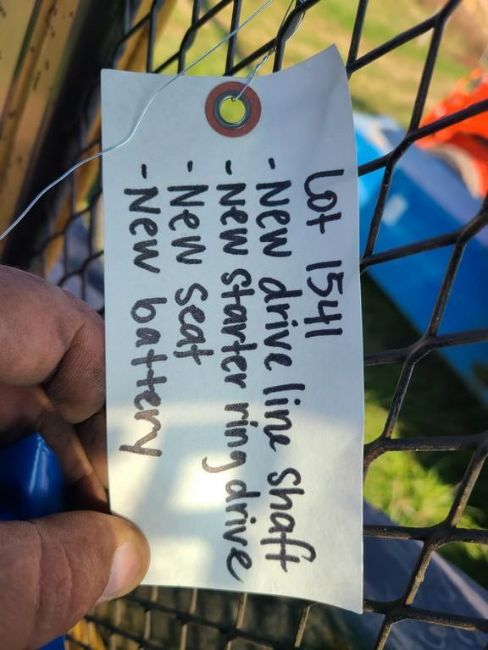 Lot 1541
- New drive line shaft
- New starter ring drive
- New seat
- New battery